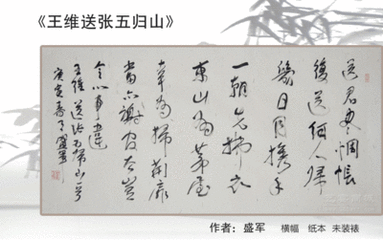 《王维送张五归山》
送君尽惆怅
復送何人歸
幾日同携手
一朝先拂衣
東山有茅屋
幸為掃荆扉
當亦謝官去豈
令心事違
王维送张五歸山
庚寅春 盛军
作者：盛军 横幅 纸本 未装裱